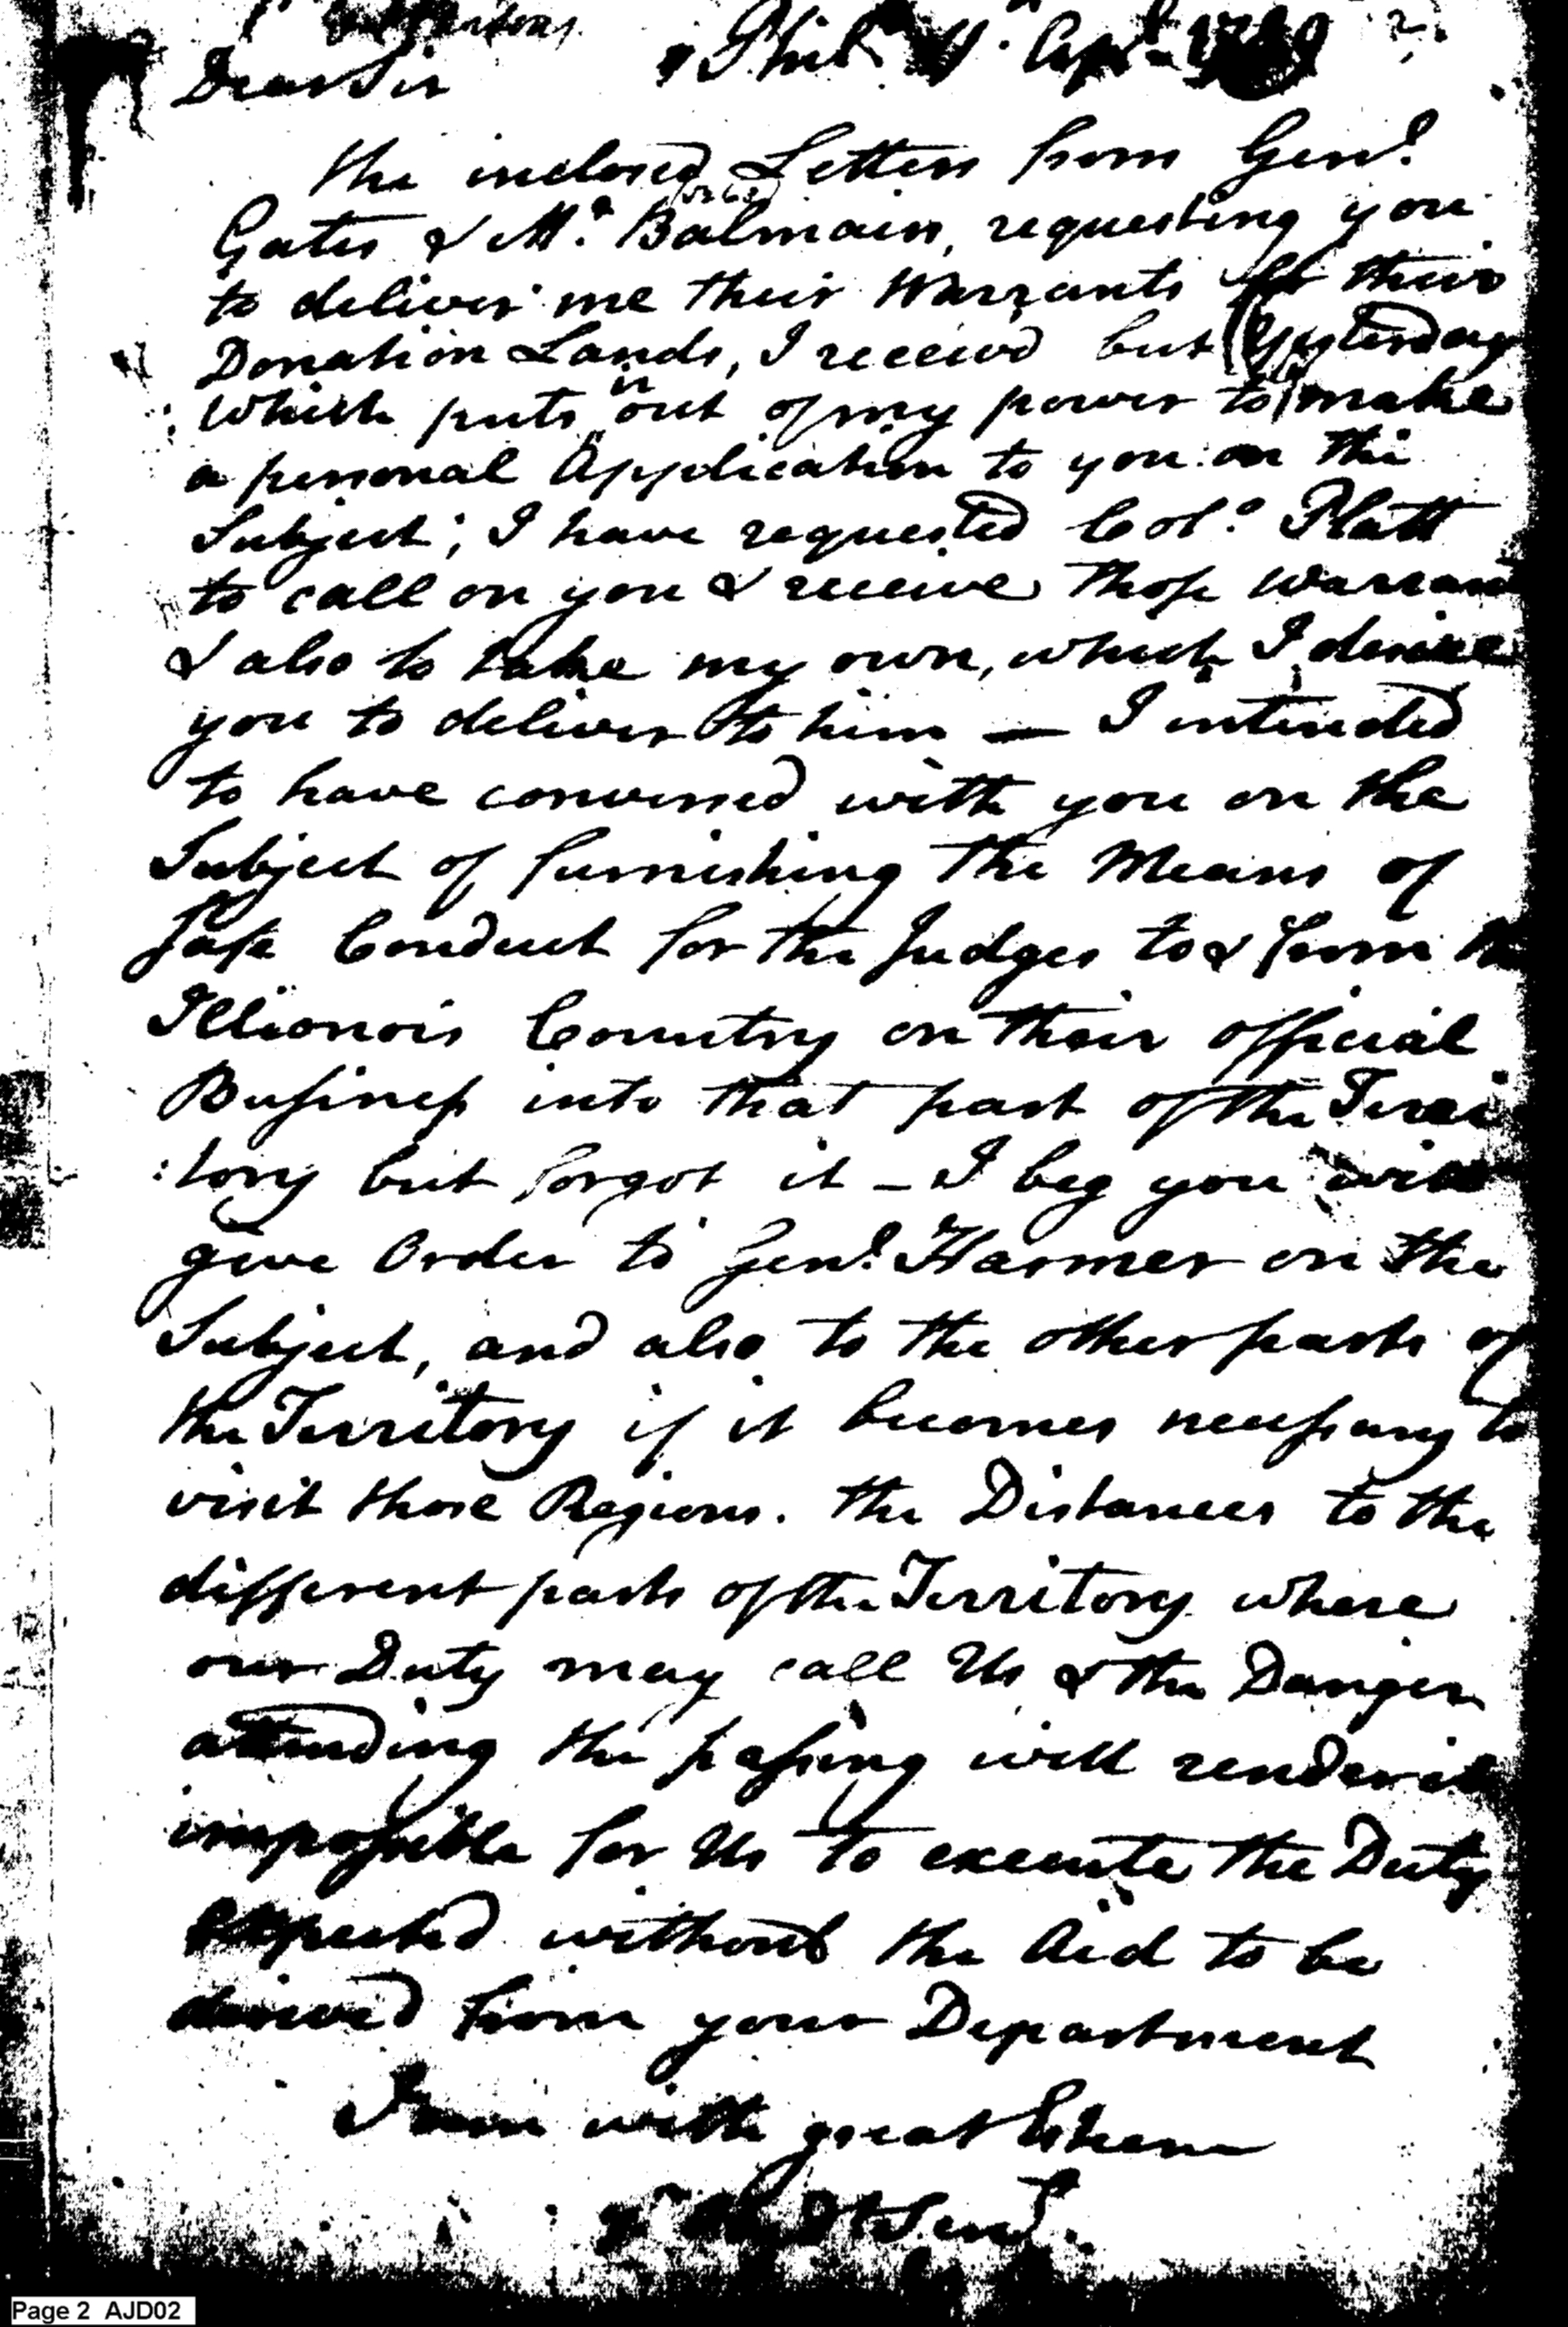 Dear Sir Phil<sup>a</sup> Apl.
the inclosed Letters from Gen.l
Gates & Mr. Balmain, requesting you
to deliver me their Warrants for their
Donation Lands, I receivd but Yesterday
which puts it out of my power to make
a personal Application to you on the
Subject; I have requested Colo. Platt
to call on you & receive those Warrant
& also to take my own, which I desire
you to deliver to him — I intended
to have conversed with you on the
Subject of furnishing the Means of
Safe Conduct for the Judges to & from the
Illionois Country on their official
Business into that part of the Terri
:tory but forgot it – I beg you will
give Order to Genl. Harmer on the
Subject, and also to the other parts of
the Territory if it becomes necessary to
visit those Regions. the Distances to the
different parts of the Territory where
our Duty may call Us & the Danger
attending the passing will render it
impossible for Us to execute the Duty
expected without the Aid to be
derived from your Department
I am with great Esteem
Servt.
Page 2 AJD02